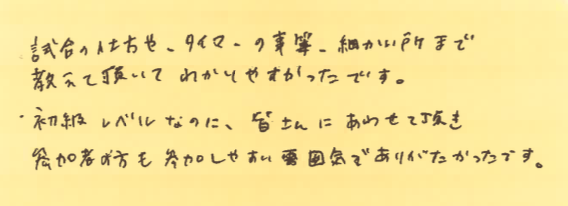 試合の仕方や、タイマーの事等、細かい所まで
教えて頂いてわかりやすかったです。
・初級レベルなのに、皆さんにあわせて頂き
参加者の方も参加しやすい雰囲気でありがたかったです。